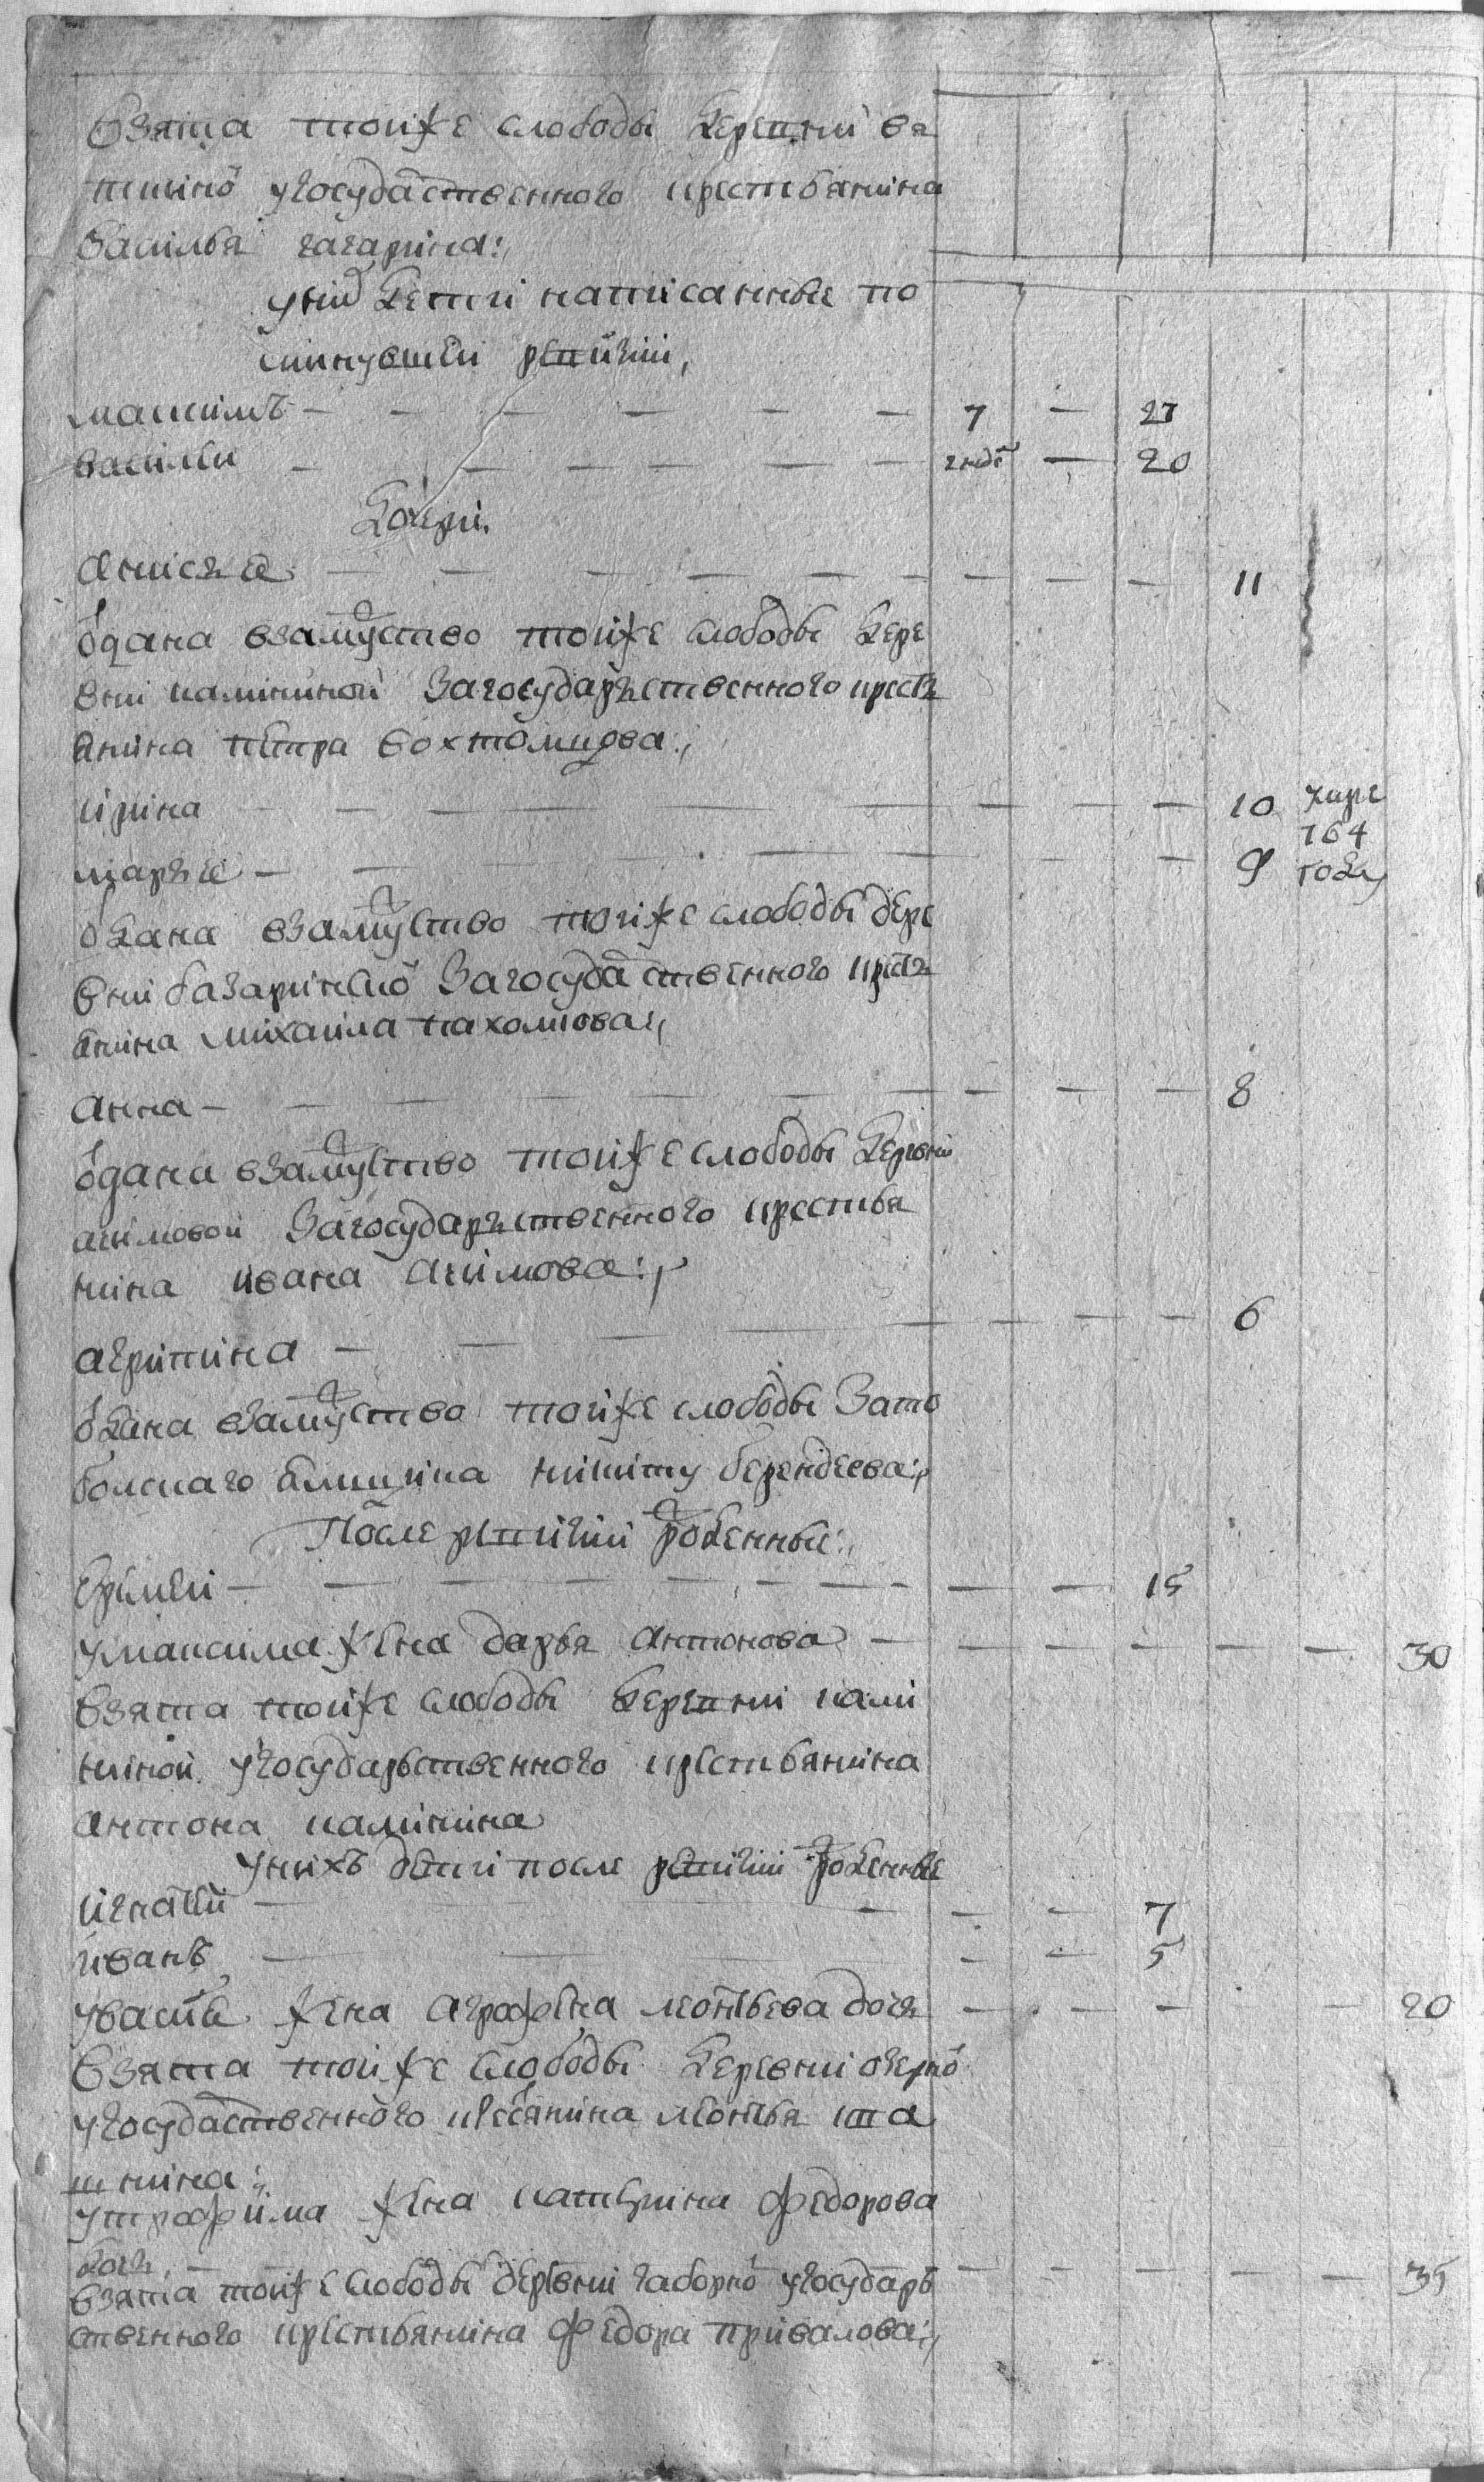 взята тоиже слободы деревни вя
ткиной у государственного крестьянина
василья гагарина:
у них дети написанные по
минувшей ревизии,
максимъ — 7 — 27
василеи — году — 20
дочери
анисья — 11
одана взамужство тоиже слободы дере
вни калининой за государъственного крестъ
янина петра вохтомцова:
ирина — 10 умре
764
марья — 9 году
одана взамужство тоиже слободы дере
вни базаринской за государственного крестъ
янина михаила пахомова:
анна — 8
одана взамужство тоиже слободы деревни
акимовой за государъственного крестья
нина ивана акимова:
агрипина — 6
одана взамужство тоиже слободы за то
больскаго ямщика никиту берендеева:
После ревизии рожденныи:
ефимеи — 15
у максима жена дарья антонова — 30
взята тоиже слободы деревни кали
ниной у государьственного крестьянина
антона калинина
у нихъ дети после ревизии рожденные
игнатеи — 7
иванъ — 5
у василья жена аграфена леонтьева дочь — 20
взята тоиже слободы деревни озерной
у государственного крестьянина леонтья та
шкина:
у трофима жена катерина федорова
дочь — 35
взята тоиже слободы деревни заборной у государь
ственного крестьянина федора привалова: